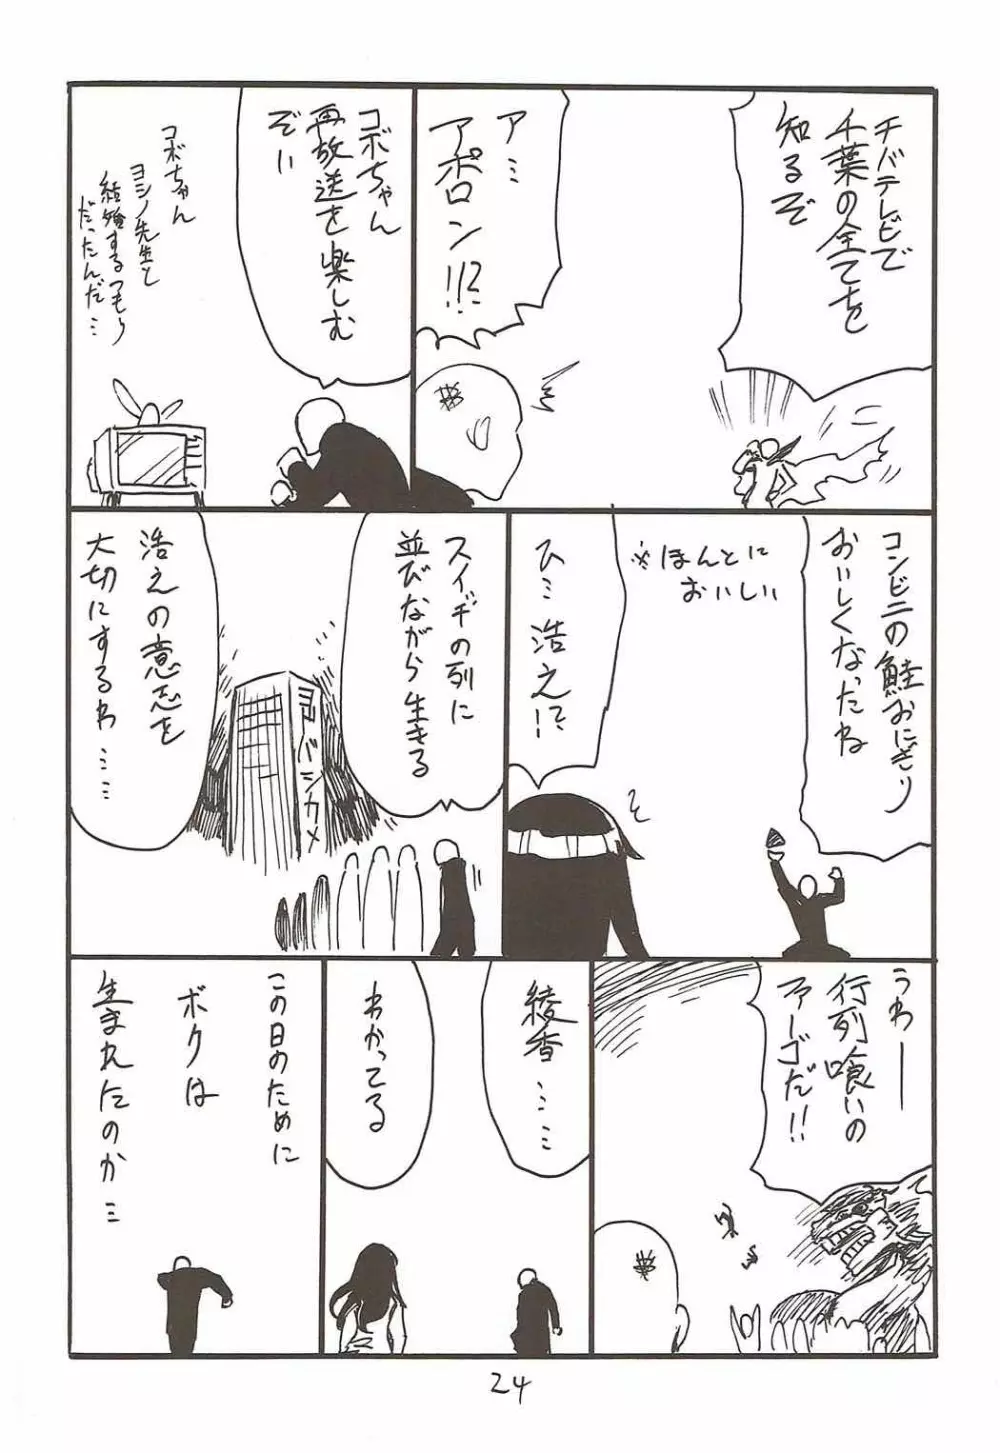 チバテレビで
千葉の全てを
知るぞ
ア…
アポロン!!?
コボちゃん
再放送を楽しむ
ぞい
コボちゃん
ヨシノ先生と
結婚するつもり
だったんだ…
コンビニの鮭おにぎり
おいしくなったね
※ほんとに
おいしい
ひ…浩え!?
スイッチの列に
並びながら生きる
ヨドバシカメ
浩えの意志を
大切にするわ……
うわー
行列喰いの
ファーゴだ!!
綾香……
わかってる
この日のために
ボクは
生まれたのか…
24